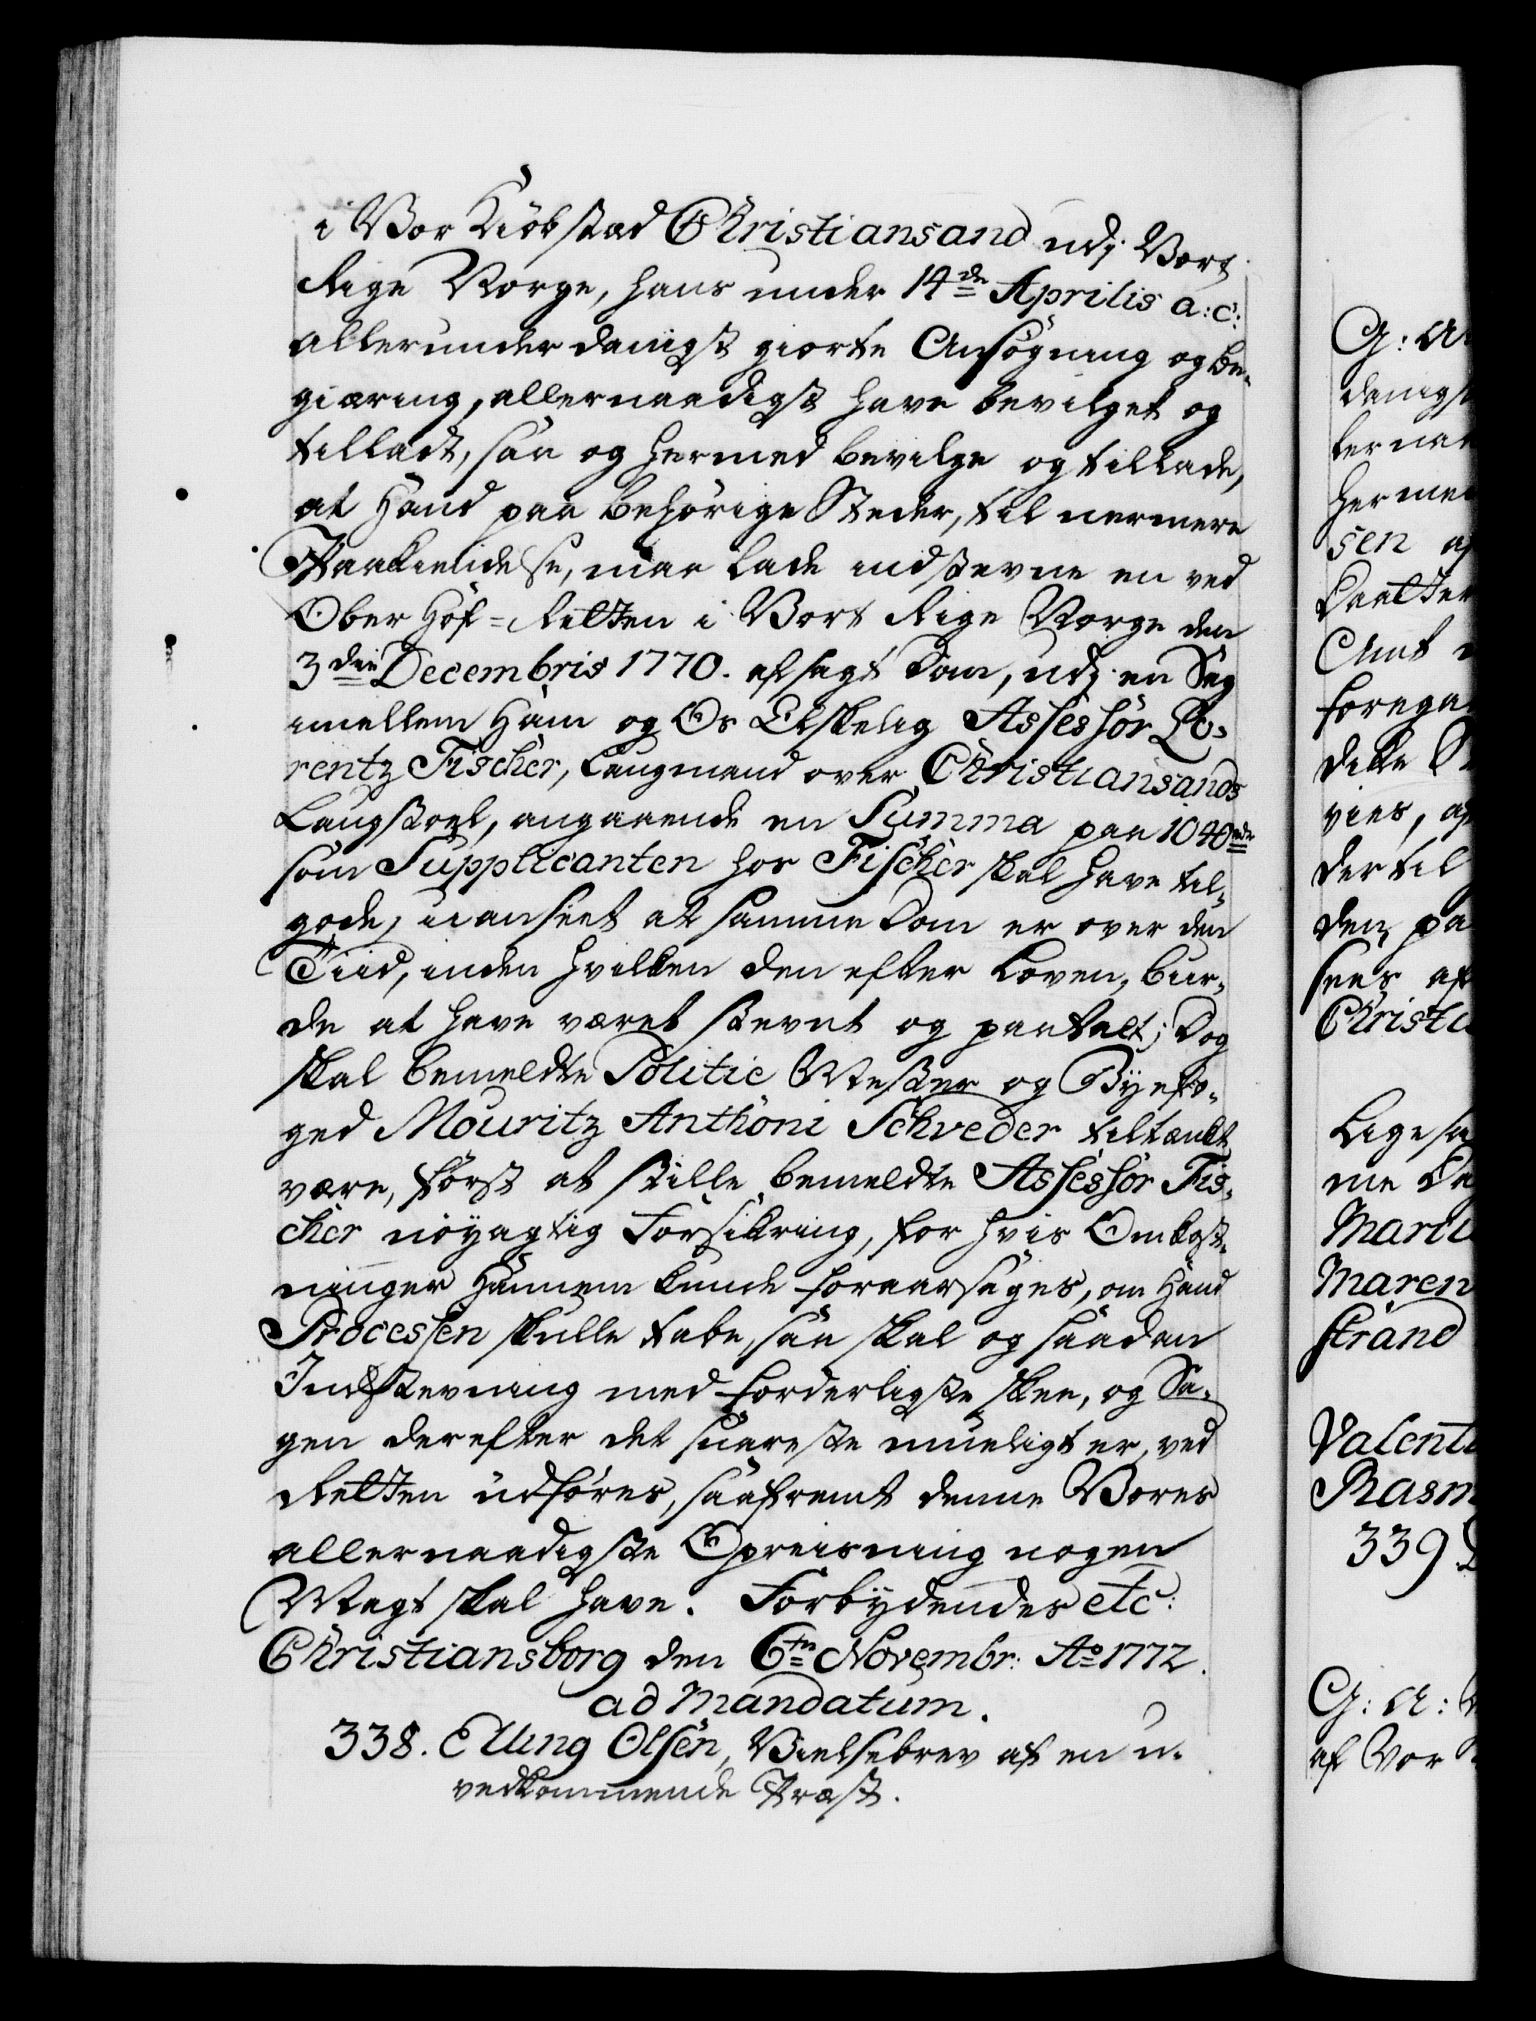 i Vor Kiöbstad Christiansand udj Vort
Rige Norge, hans under 14de Aprilis a: c:
allerunderdanigst giorte Ansögning og be-
giæring, allernaadigst have bevilget og
tilladt, saa og hermed bevilge og tillade,
at Hand paa behörige Steder, til nermere
Paakiendelse, maa lade indstevne en ved
Ober Hof-Retten i Vort Rige Norge den
3die Decembris 1770. afsagt Dom, udj en Sag
imellem Ham og Os Elskelig Assessor Lo-
rentz Fischer, Laugmand over Christiansands
Laugstoel, angaaende en Summa paa 1040 rdr
som Supplicanten hos Fischer skal have til-
gode, uanseet at samme Dom er over den
Tiid, inden hvilken den efter Loven, bur-
de at have været stevnt og paatalt; Dog
skal bemeldte Politie Mester og Byefo-
ged Mouritz Anthoni Schveder tiltænkt
være, först at stille bemeldte Assessor Fis-
cher nöyagtig Forsikring, for hvis Omkost-
ninger Hannem kunde foraarsages, om Hand
Processen skulle tabe, saa skal og saadan
Indstevning med forderligste skee, og Sa-
gen derefter det snareste mueligt er, ved
Retten udföres, saafremt denne Vores
allernaadigste Opreisning nogen
Magt skal have. Forbydendes etc:
Christiansborg den 6te Novembr: Ao 1772.
ad Mandatum.
338. Elling Olsen, Vielsebrev af en u-
vedkommende Præst.
G: A
danigst
lernaa
herme
sen af
Amt
forega
dette
vies, at
dertil
den, pa
sees at
Christi
Ligesa
me Da
Mari
Maren
strand
Valenti
Rasm
339.
G: A: V
af Vor